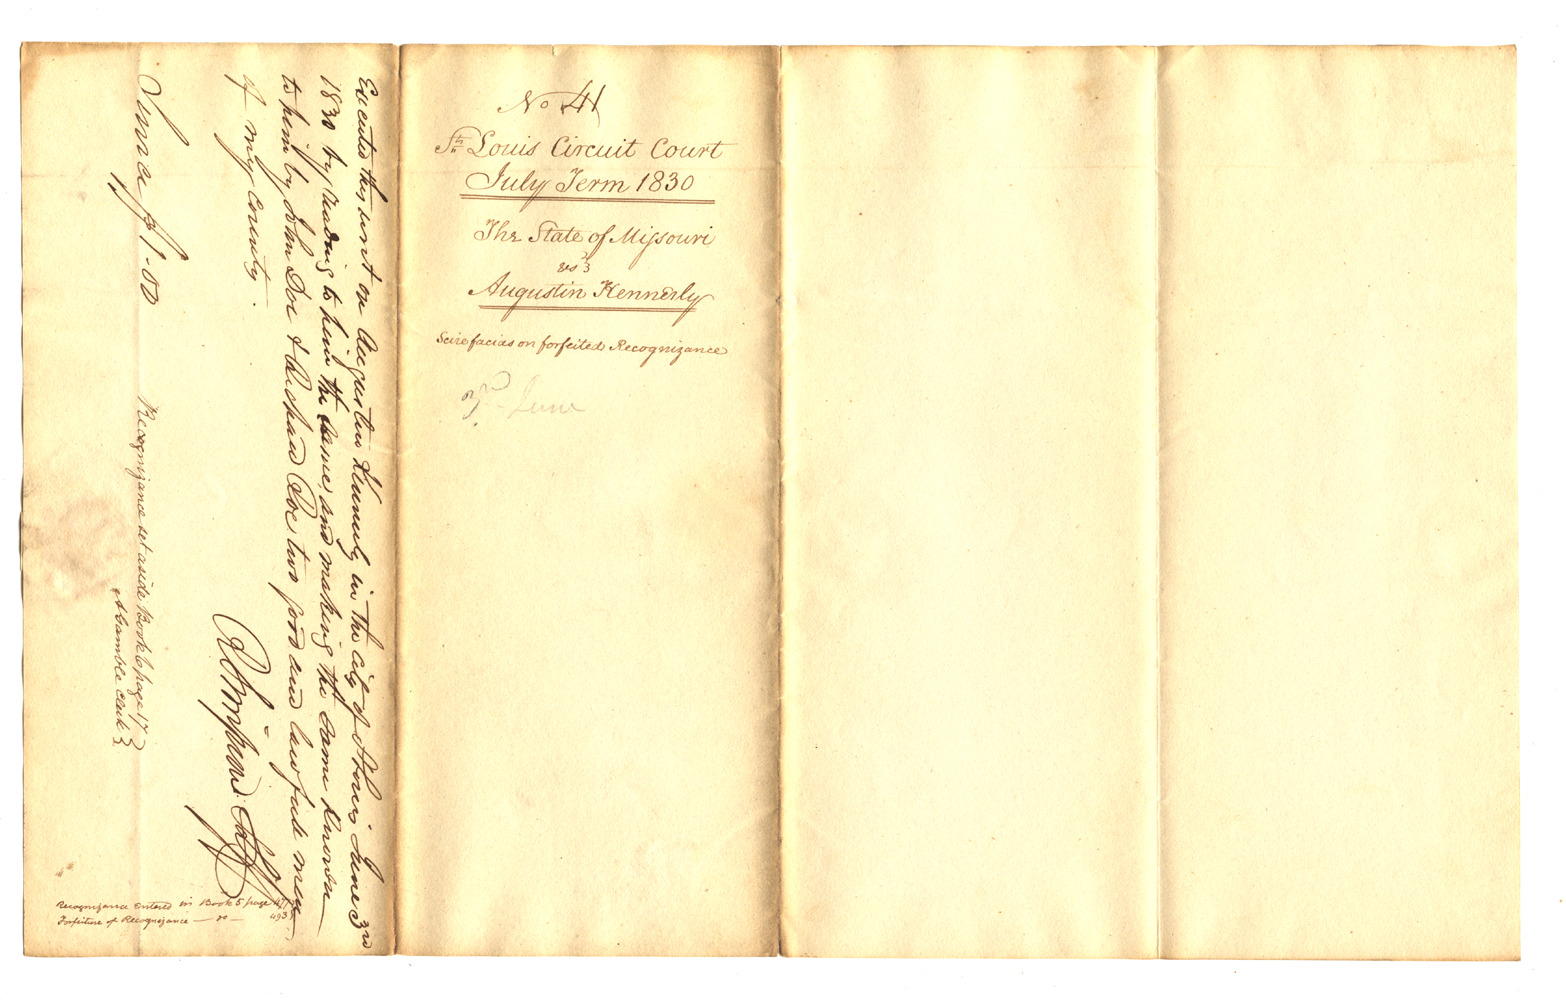 No 41
St. Louis Circuit Court
July Term 1830
The State of Missouri
vs
Augustin Kennerly
Scire facias on forfeited Recognizance
3rd June
Executed this writ on Augustin Kennerly in the city of St Louis June 3rd
1830 by reading to him the same, and making the same known
to him by John Doe & Richard Roe two good and lawfull men
of my county.
Simpson Shff
$1.00
Recognizance set aside Book 6 page 17
A Gamble Clerk
Recognizance Entered in Book 5 page
Forfeiture of Recognizance — do — 493